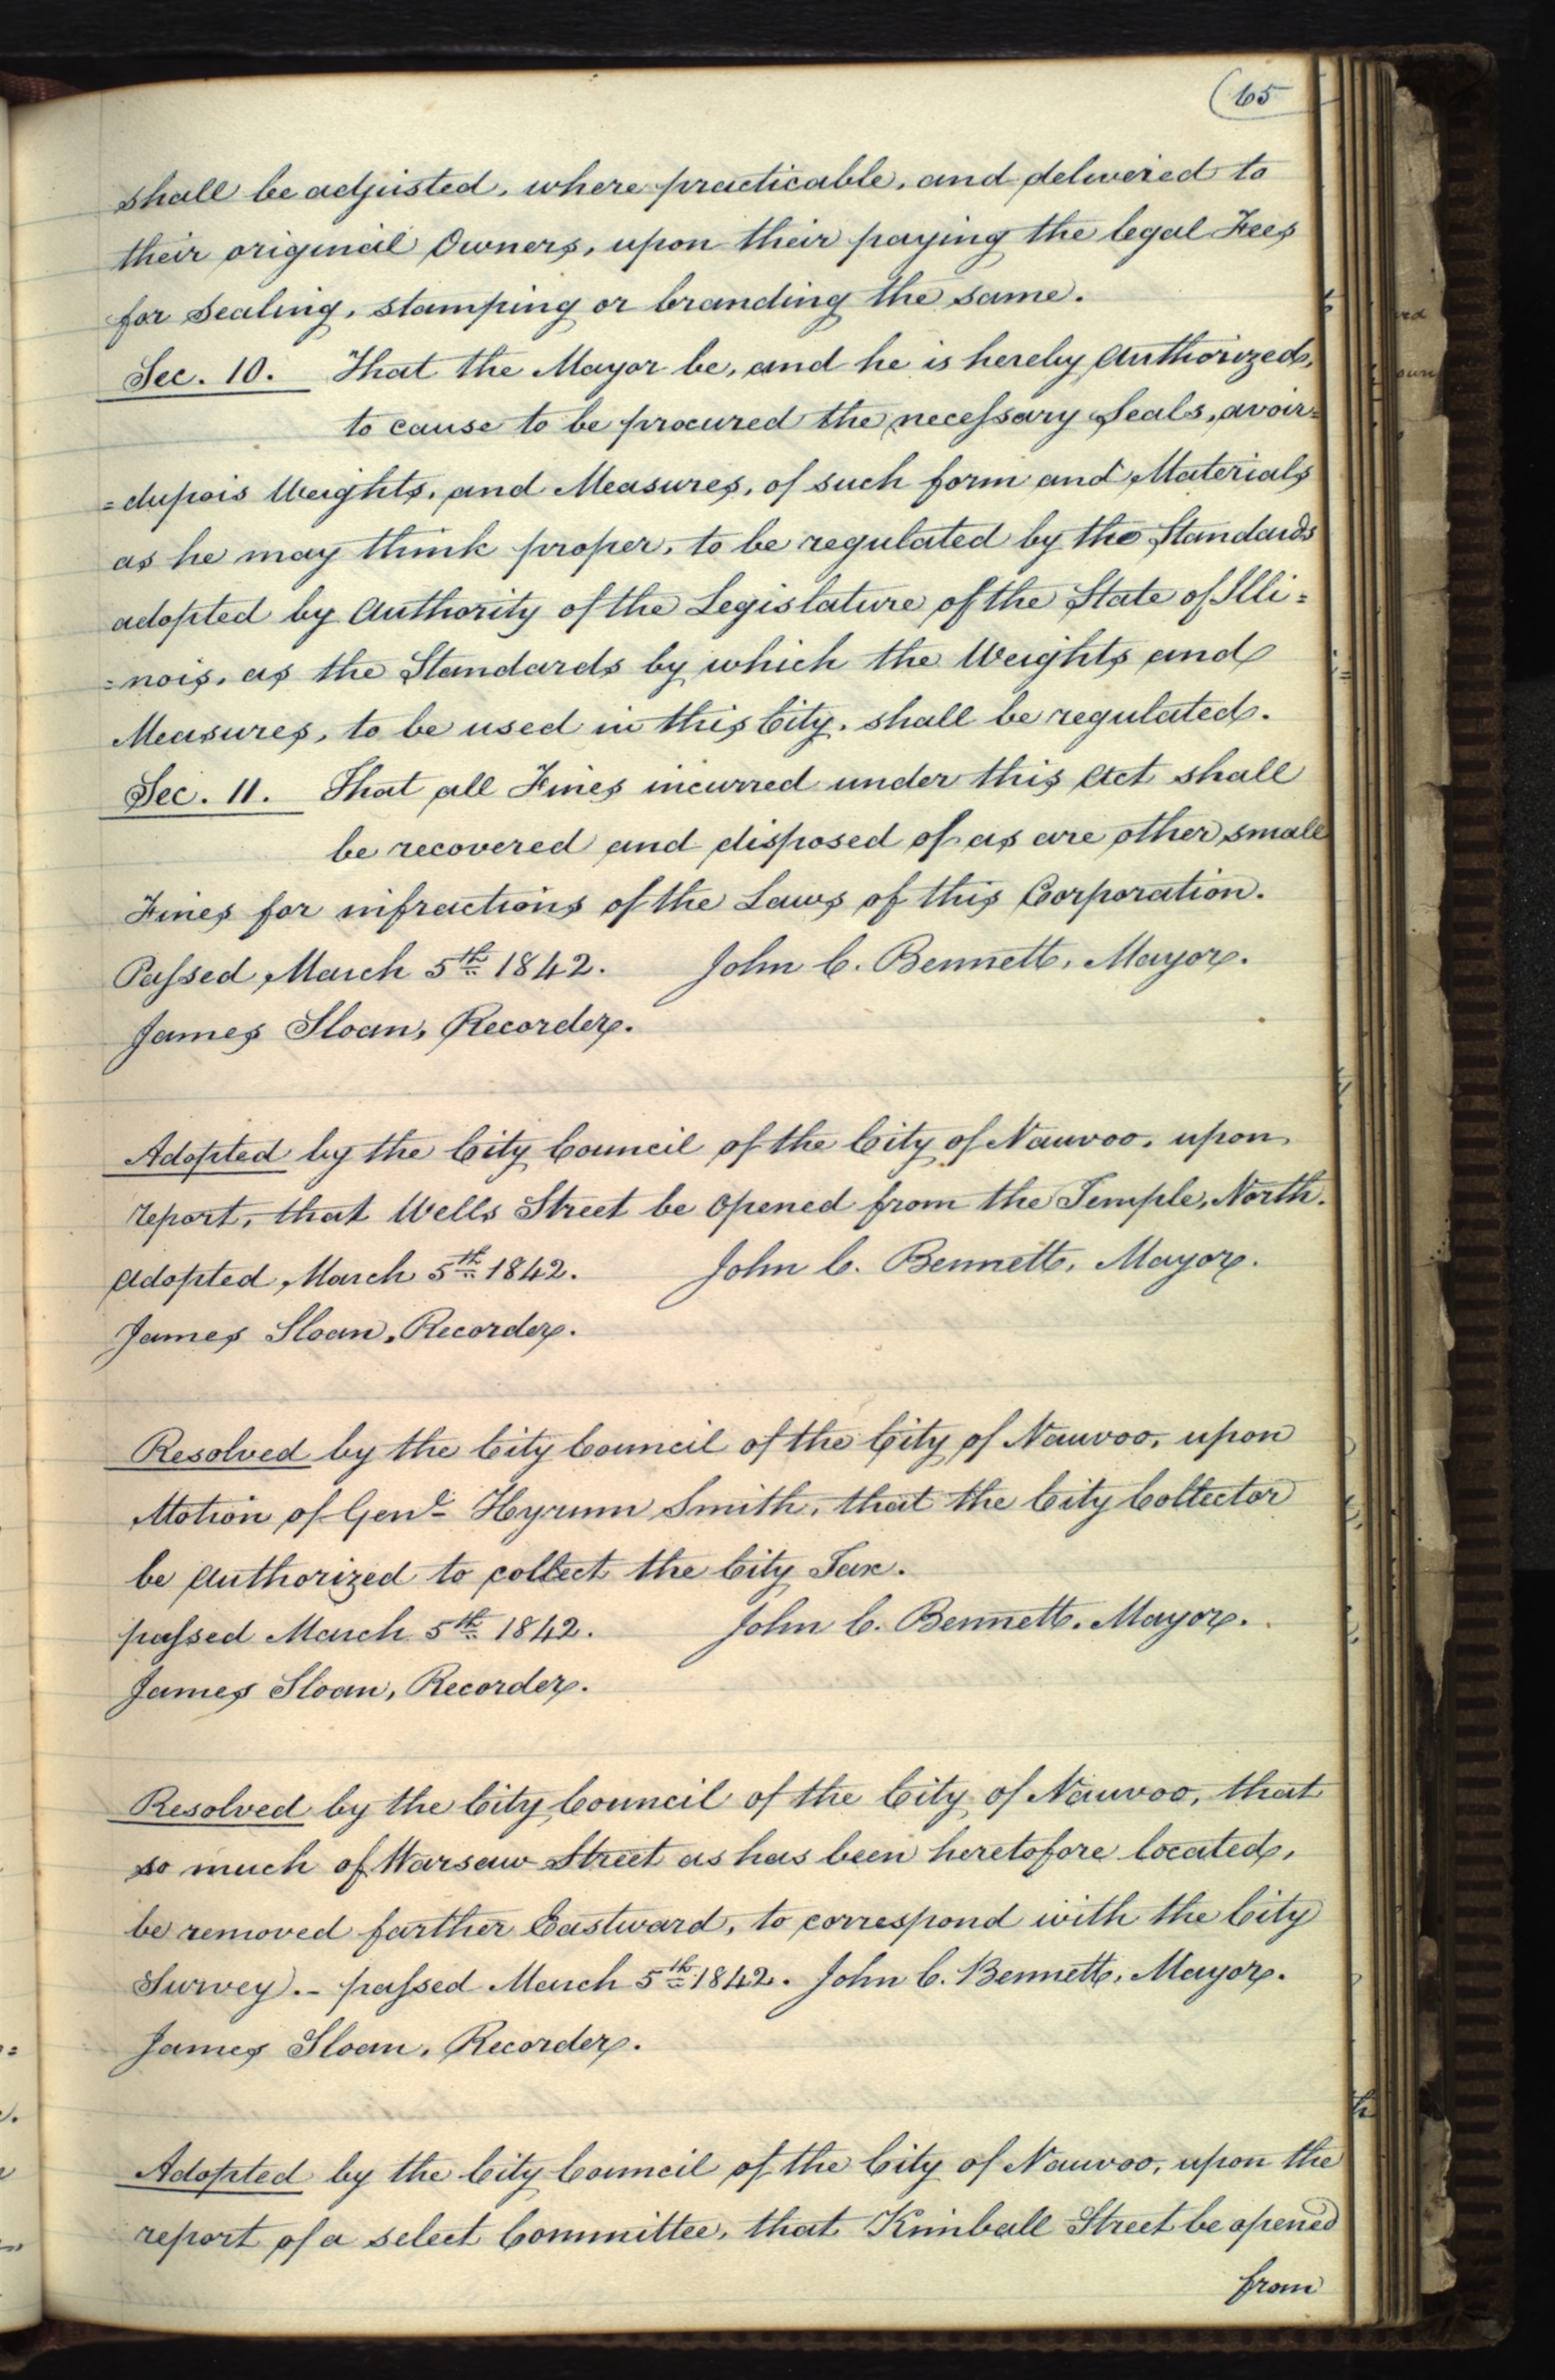 (65
shall be adjusted, where practicable, and delivered to
their original Owners, upon their paying the legal Fees
for Sealing, stamping or branding the same.
Sec. 10. That the Mayor be, and he is hereby Authorized,
to cause to be procured the necessary Seals, avoir=
=dupois Weights, and Measures, of such form and Materials
as he may think proper, to be regulated by the Standards
adopted by Authority of the Legislature of the State of Illi=
=nois, as the Standards by which the Weights and
Measures, to be used in this City, shall be regulated.
Sec. 11. That all Fines incurred under this Act shall
be recovered and disposed of as are other small
Fines for infractions of the Laws of this Corporation.
Passed March 5th 1842. John C. Bennett, Mayor.
James Sloan, Recorder.
Adopted by the City Council of the City of Nauvoo, upon
report, that Wells Street be opened from the Temple, North.
Adopted, March 5th 1842. John C. Bennett, Mayor.
James Sloan, Recorder.
Resolved by the City Council of the City of Nauvoo, upon
Motion of Genl. Hyrum Smith, that the City Collector
be Authorized to collect the City Tax.
passed March 5th 1842. John C. Bennett, Mayor.
James Sloan, Recorder.
Resolved by the City Council of the City of Nauvoo, that
so much of Warsaw Street as has been heretofore located,
be removed farther Eastward, to correspond with the City
Survey.- passed March 5th 1842. John C. Bennett, Mayor.
James Sloan, Recorder.
Adopted by the City Council of the City of Nauvoo, upon the
report of a select Committee, that Kimball Street be opened
from